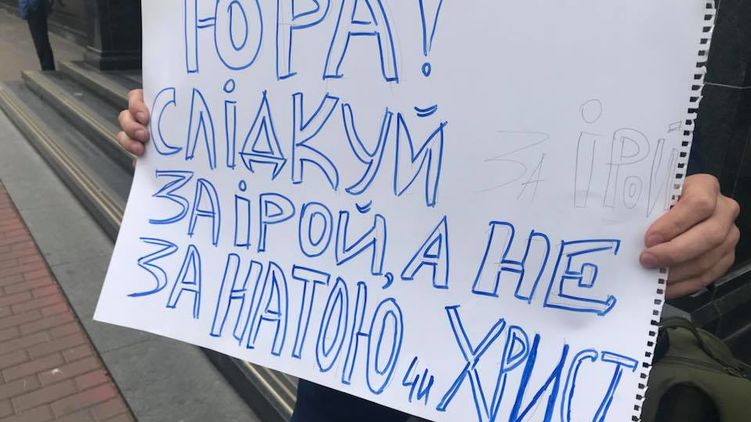 ЮРА!
СЛІДКУЙ ЗА ІРОЙ
ЗА ІРОЙ, А НЕ
ЗА НАТОЮ чи ХРИСТ